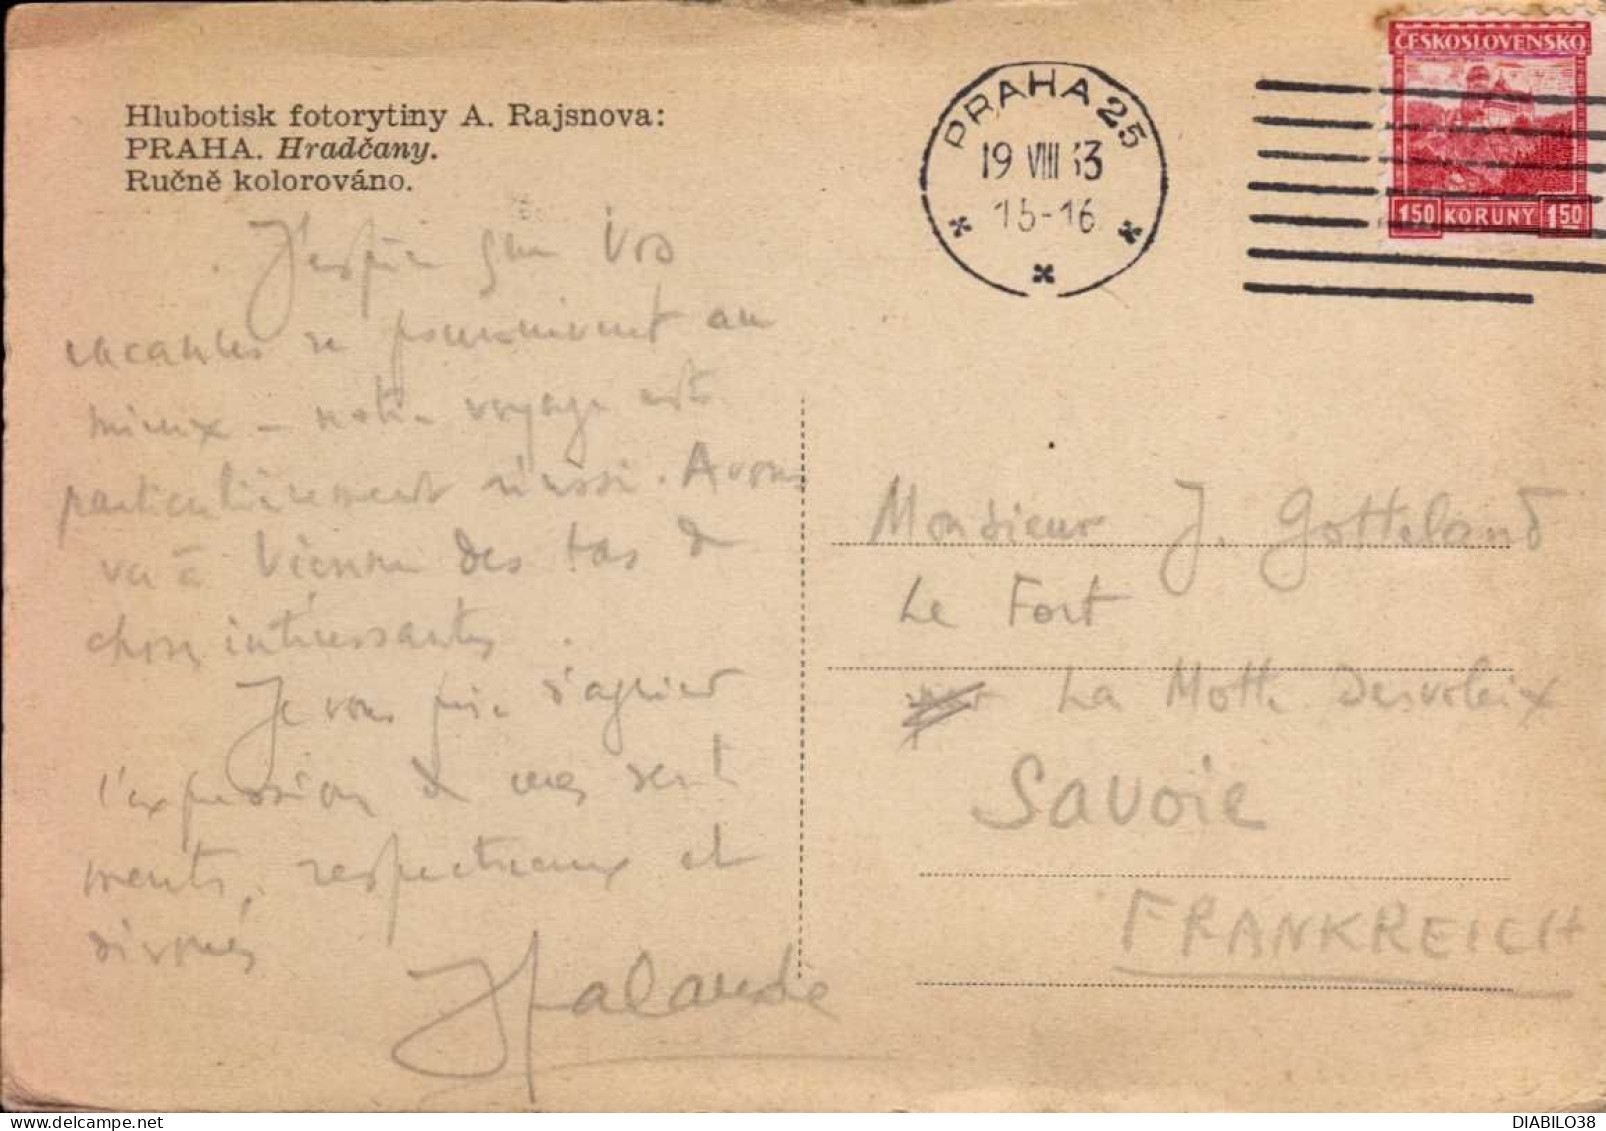 Hlubotisk fotorytiny A. Rajsnova:
PRAHA. Hradčany.
Ručně kolorováno.
PRAHA 25
19 VIII 33
15-16
ČESKOSLOVENSKO
1 50 KORUNY 1 50
J'espère que vos
vacances se poursuivent au
mieux - notre voyage est
particulièrement réussi. Avons
vu à Vienne des tas de
choses intéressantes.
Je vous prie d'agréer
l'expression de mes senti
ments, respectueux et
dévoués
Monsieur J. Gotteland
Le Fort
La Motte Servolex
Savoie
FRANKREICH
DIABILO38